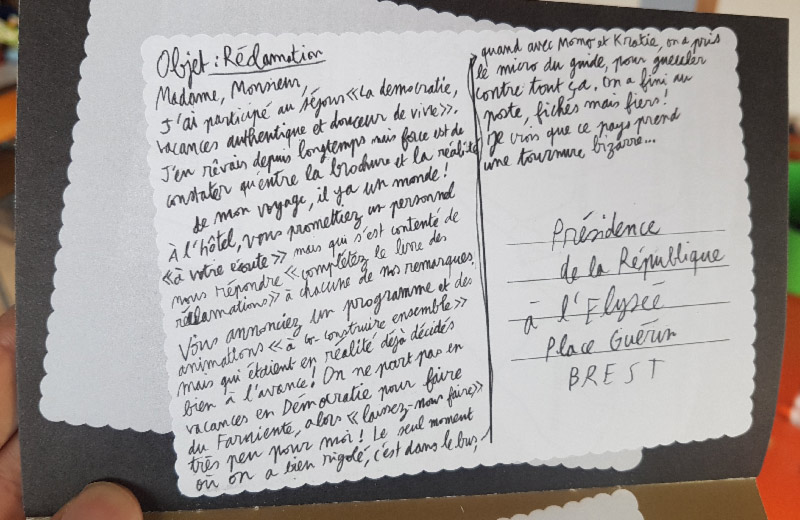 Objet : Réclamation
Madame, Monsieur,
J'ai participé au séjour « La démocratie,
vacances authentique et douceur de vivre ».
J'en rêvais depuis longtemps mais force est de
constater qu'entre la brochure et la réalité
de mon voyage, il y a un monde !
À l'hôtel, vous promettiez un personnel
« à votre écoute » mais qui s'est contenté de
nous répondre « complétez le livre des
réclamations » à chacune de nos remarques.
Vous annonciez un programme et des
animations « à co-construire ensemble »
mais qui étaient en réalité déjà décidés
bien à l'avance ! On ne part pas en
vacances en Démocratie pour faire
du Farniente, alors « laissez-nous faire »
très peu pour moi ! Le seul moment
où on a bien rigolé, c'est dans le bus,
quand avec Momo et Krotie, on a pris
le micro du guide, pour gueuler
contre tout ça. On a fini au
poste, fichés mais fiers !
Je crois que ce pays prend
une tournure bizarre...
Présidence
de la République
à l'Elysée
Place Guérin
BREST